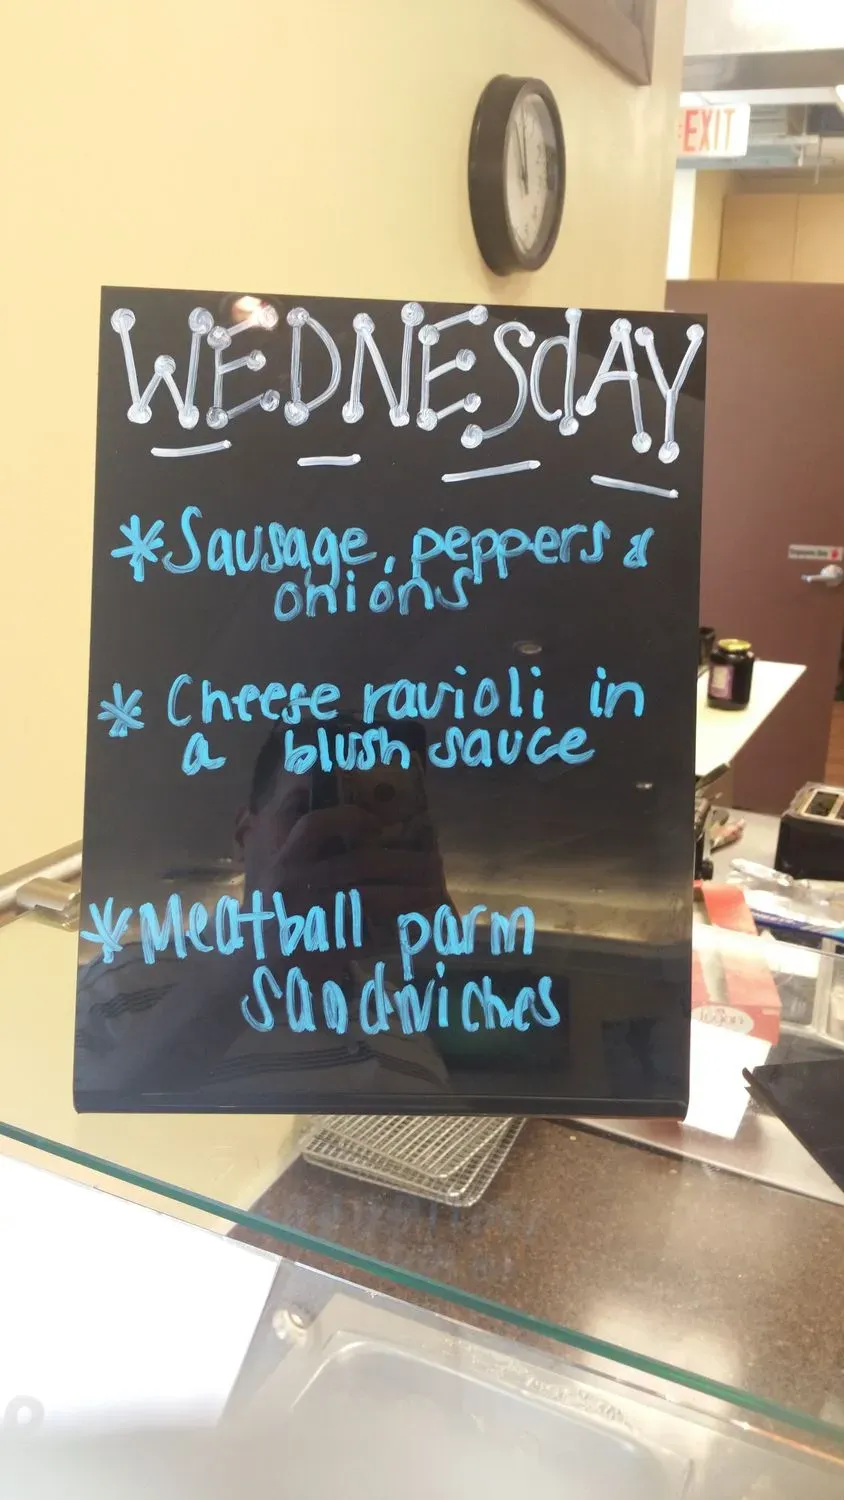 EXIT
WEDNESdAY
*Sausage, peppers &
onions
* Cheese ravioli in
a blush sauce
*Meatball parm
sandwiches